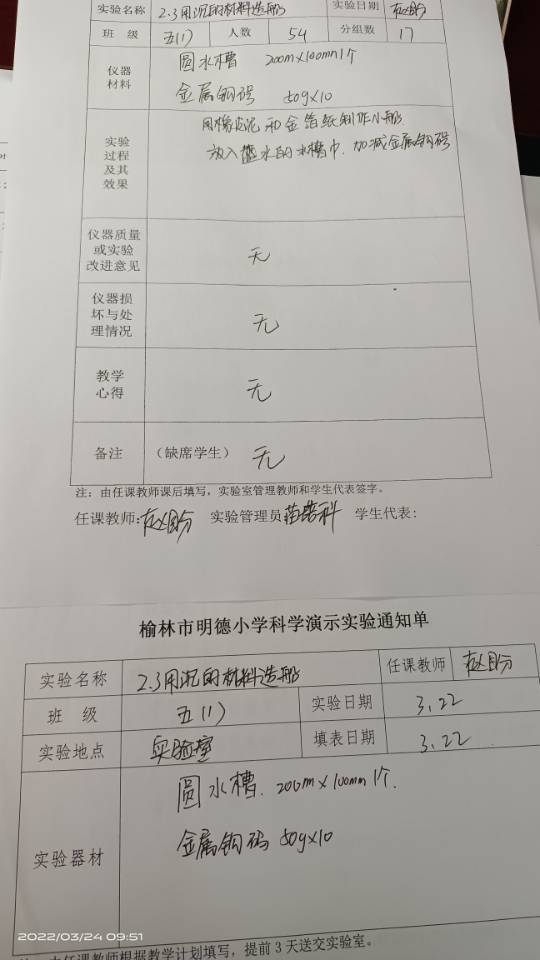 实验名称 2.3用沉的材料造船 实验日期
班 级 五(1) 人数 54 分组数 17
仪器材料 圆水槽 200m×100mm1个
金属钩码 50g×10
实验过程及其效果 用橡皮泥和金箔纸制作小船
放入盛水的水槽中.加减金属钩码
仪器质量或实验改进意见 无
仪器损坏与处理情况 无
教学心得 无
备注 (缺席学生) 无
注:由任课教师课后填写,实验室管理教师和学生代表签字。
任课教师: 实验管理员 学生代表:
榆林市明德小学科学演示实验通知单
实验名称 2.3用沉的材料造船 任课教师
班 级 五(1) 实验日期 3.22
实验地点 实验室 填表日期 3.22
实验器材 圆水槽.200m×100mm1个.
金属钩码 50g×10
由任课教师根据教学计划填写,提前3天送交实验室。
2022/03/24 09:51